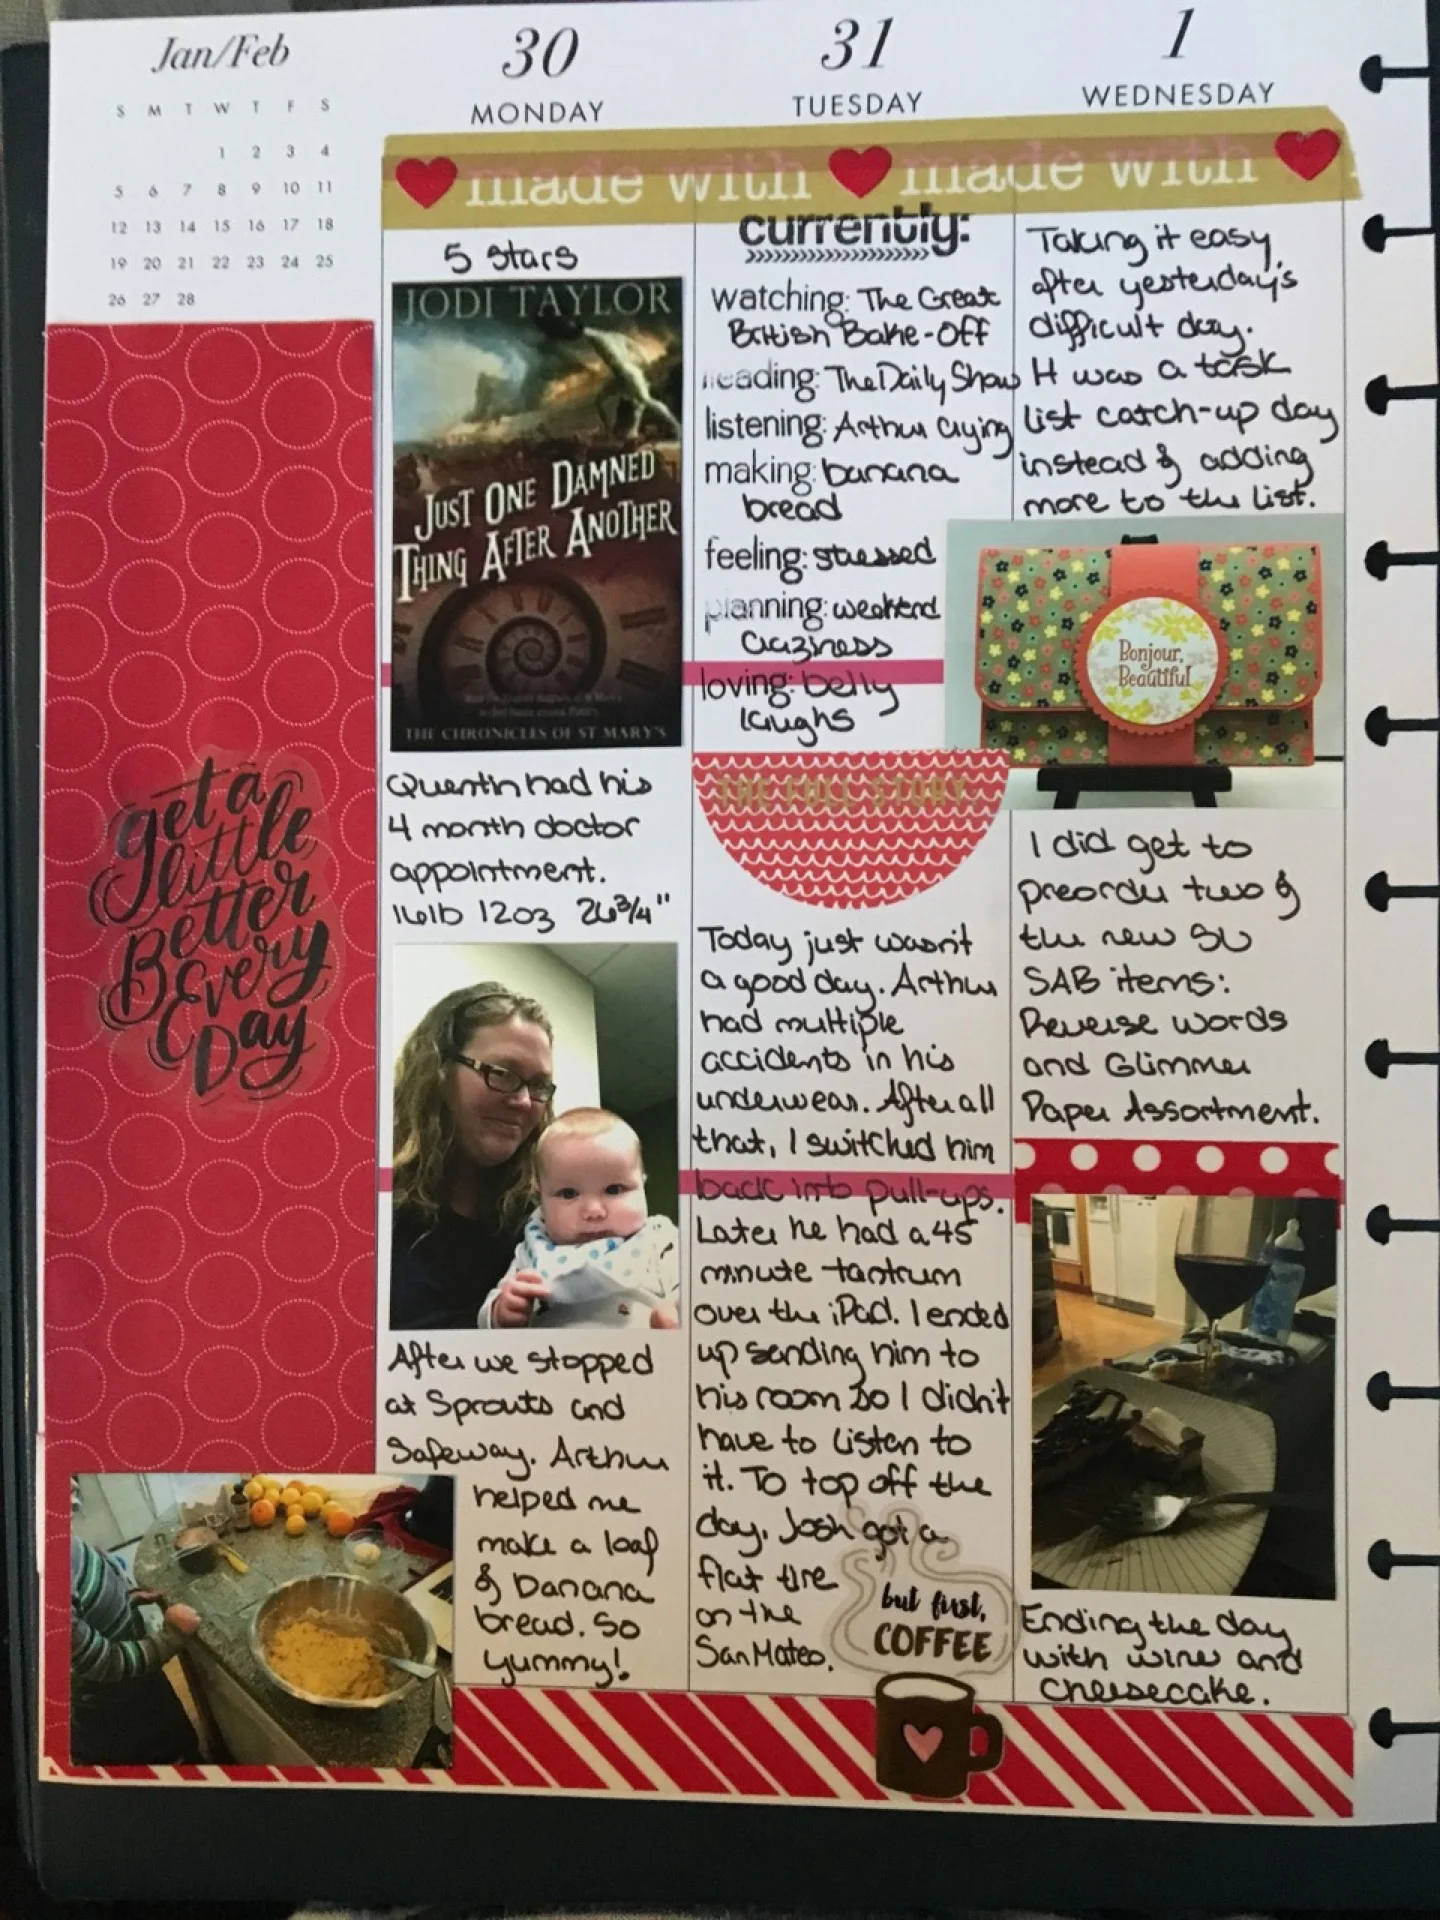 Jan/Feb
S M T W T F S
1 2 3 4
5 6 7 8 9 10 11
12 13 14 15 16 17 18
19 20 21 22 23 24 25
26 27 28
get a
little
Better
Every
Day
30
MONDAY
31
TUESDAY
1
WEDNESDAY
made with made with
5 stars
JODI TAYLOR
JUST ONE DAMNED
THING AFTER ANOTHER
THE CHRONICLES OF ST MARY'S
Quentin had his
4 month doctor
appointment.
16lb 12oz 26 3/4"
After we stopped
at Sprouts and
Safeway. Arthur
helped me
make a loaf
of banana
bread. So
yummy!
currently:
watching: The Great
British Bake-Off
reading: The Daily Show
listening: Arthur crying
making: banana
bread
feeling: stressed
planning: weekend
craziness
loving: belly
laughs
THE FULL STORY
Today just wasn't
a good day. Arthur
had multiple
accidents in his
underwear. After all
that, I switched him
back into pull-ups.
Later he had a 45
minute tantrum
over the iPad. I ended
up sending him to
his room so I didn't
have to listen to
it. To top off the
day, Josh got a
flat tire
on the
San Mateo.
but first,
COFFEE
Taking it easy
after yesterday's
difficult day.
It was a task
list catch-up day
instead of adding
more to the list.
Bonjour,
Beautiful
I did get to
preorder two of
the new SU
SAB items:
Reverse words
and Glimmer
Paper Assortment.
Ending the day
with wine and
cheesecake.